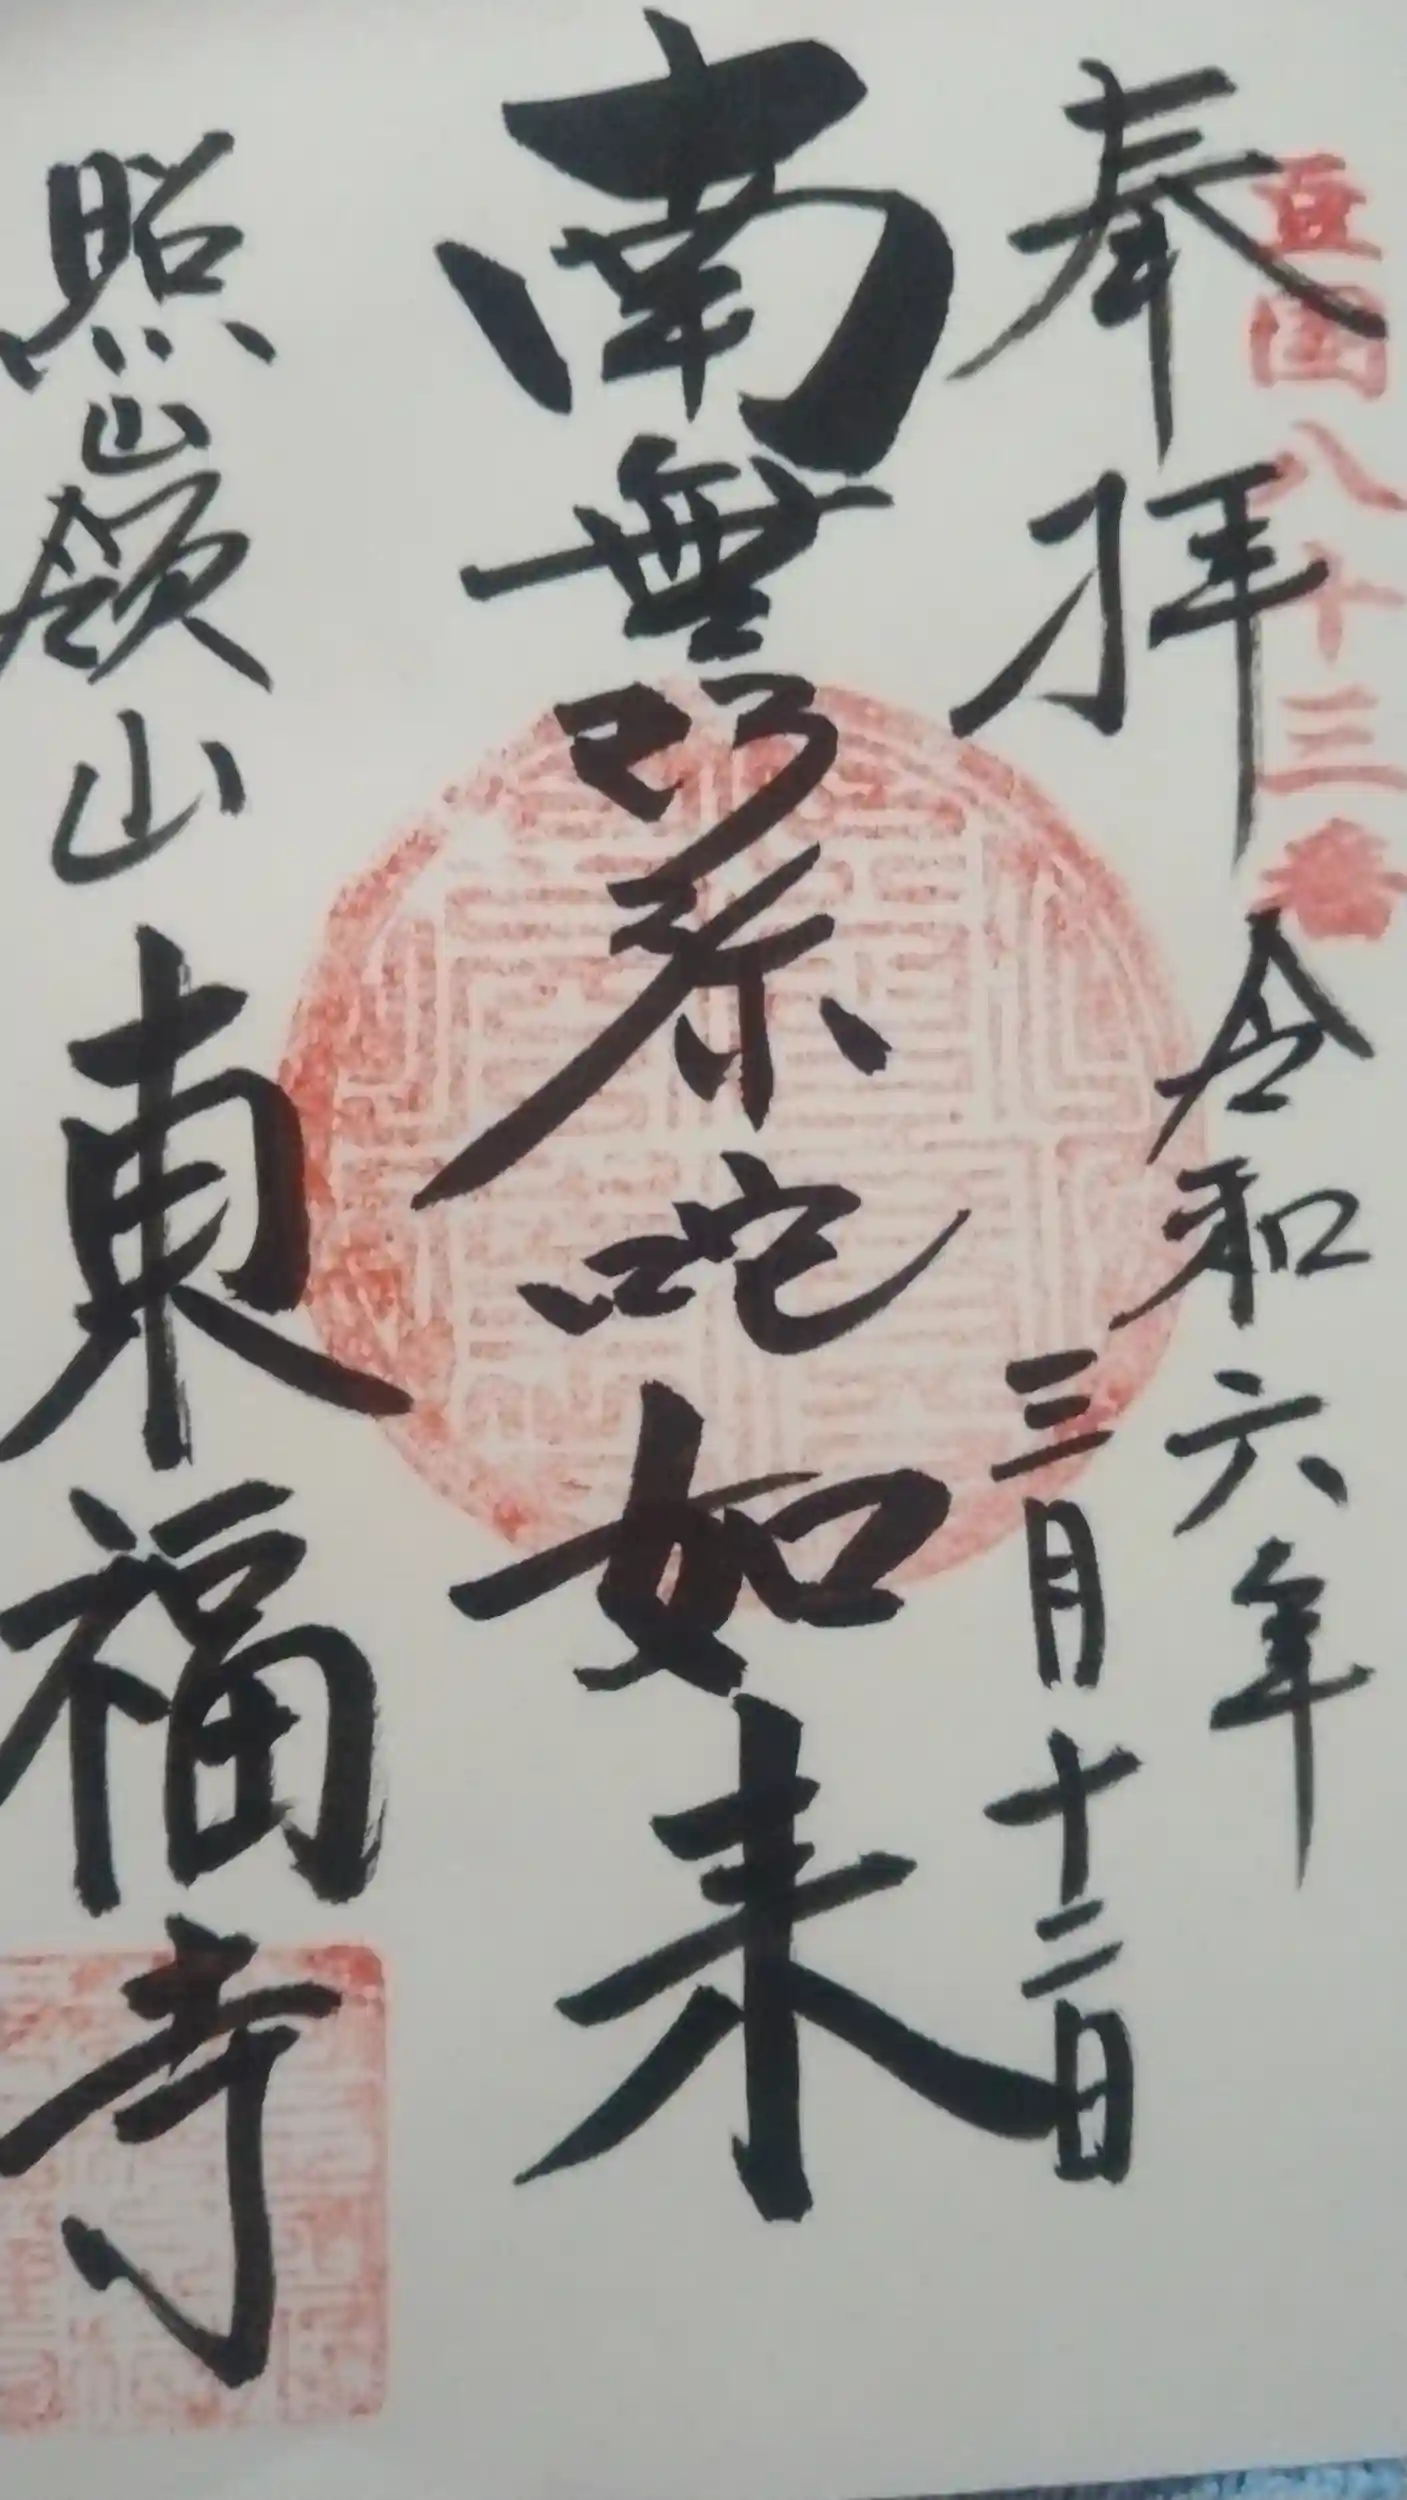 豆国八十三番
奉拝
令和六年
三月十二日
南無阿弥陀如来
照嶺山 東福寺